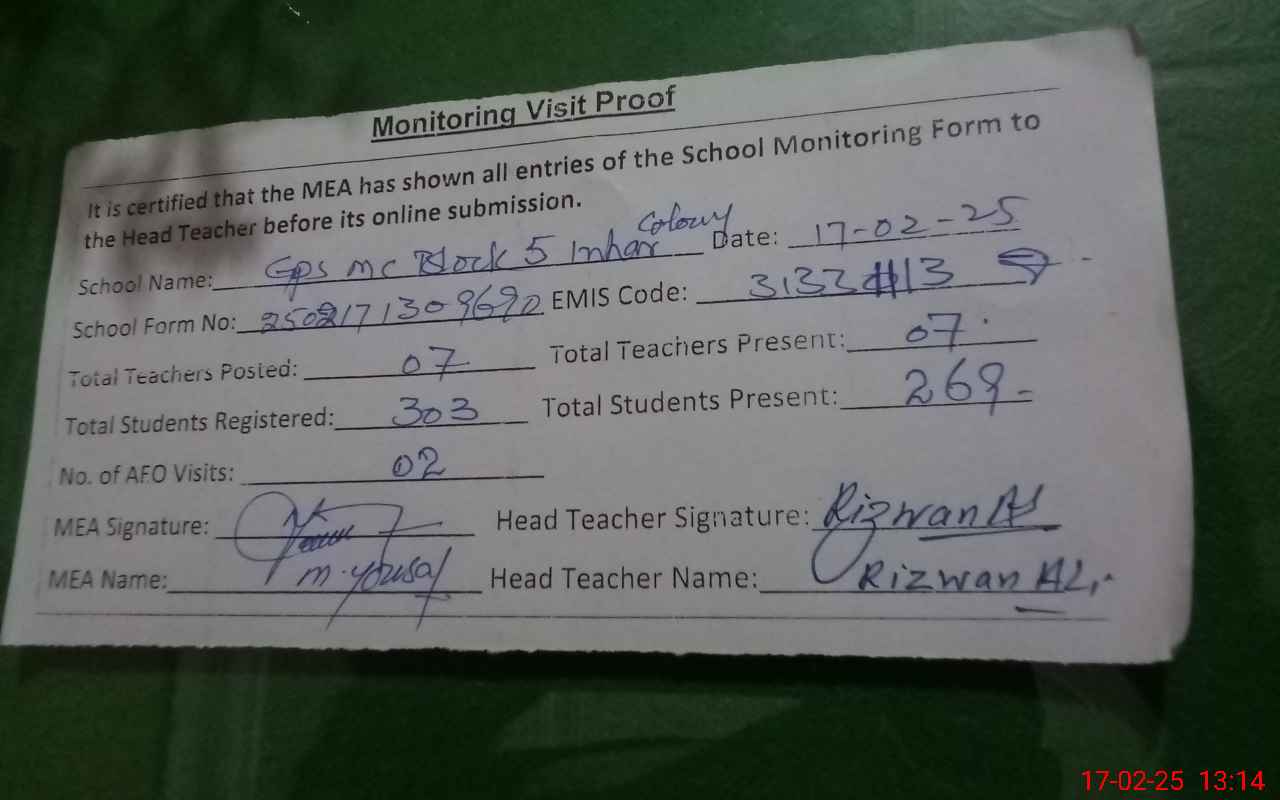 Monitoring Visit Proof
It is certified that the MEA has shown all entries of the School Monitoring Form to
the Head Teacher before its online submission.
School Name: GPS MC Block 5 Colony Date: 17-02-25
School Form No: EMIS Code:
Total Teachers Posted: 07 Total Teachers Present: 07
Total Students Registered: 303 Total Students Present: 269
No. of AFO Visits: 02
MEA Signature: Head Teacher Signature: Rizwan Ali
MEA Name: M. Yousaf Head Teacher Name: Rizwan Ali
17-02-25 13:14